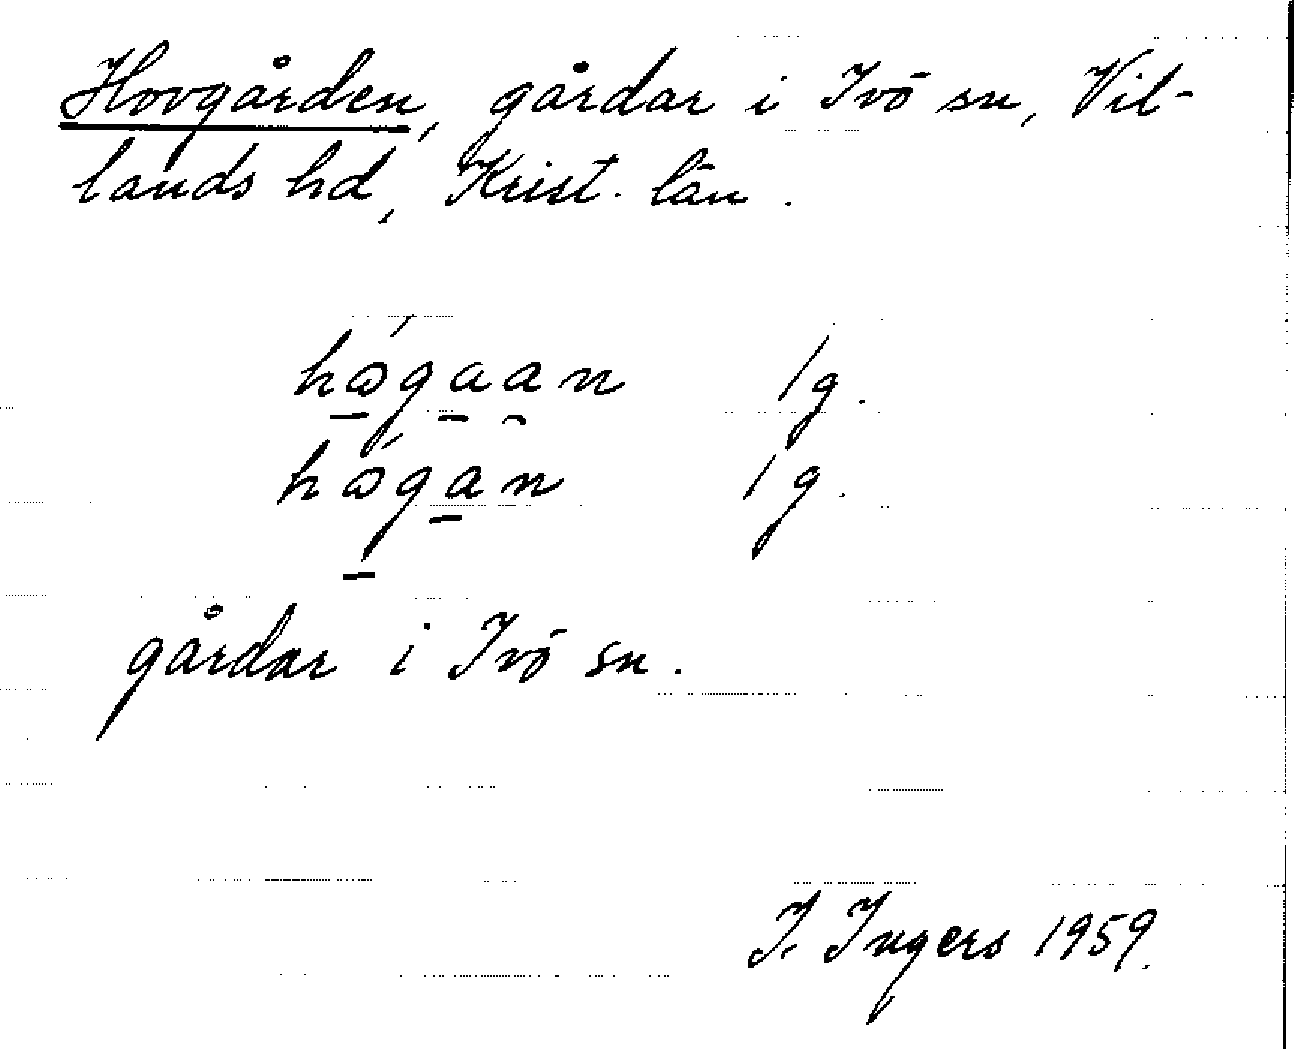 Hovgården, gårdar i Ivö sn, Vil-
lands hd, Krist. län.
hǿgaan 1 g.
hǿgan 1 g.
gårdar i Ivö sn.
I. Ingers 1959.